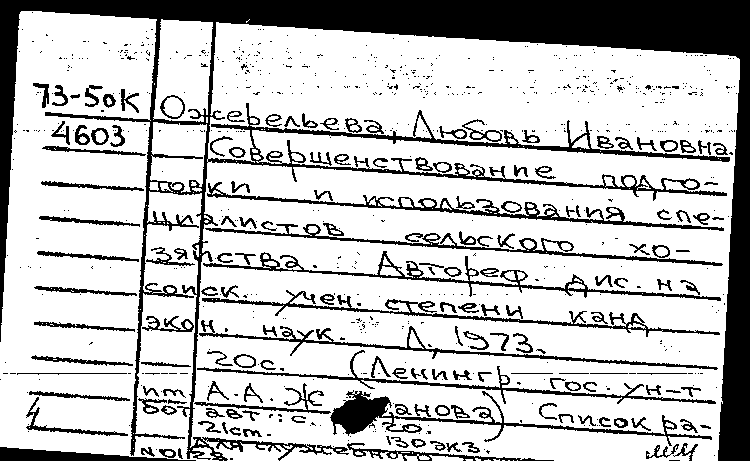 73-5ок Ожерельева, Любовь Ивановна.
4603 Совершенствование подго-
товки и использования спе-
циалистов сельского хо-
зяйства. Автореф. дис. на
соиск. учен. степени канд
экон. наук. Л., 1973.
20с. (Ленингр. гос. ун-т
А.А. Ж анова). Список ра-
бот авт.: с. 20.
21ст. 130экз.
Для служебного